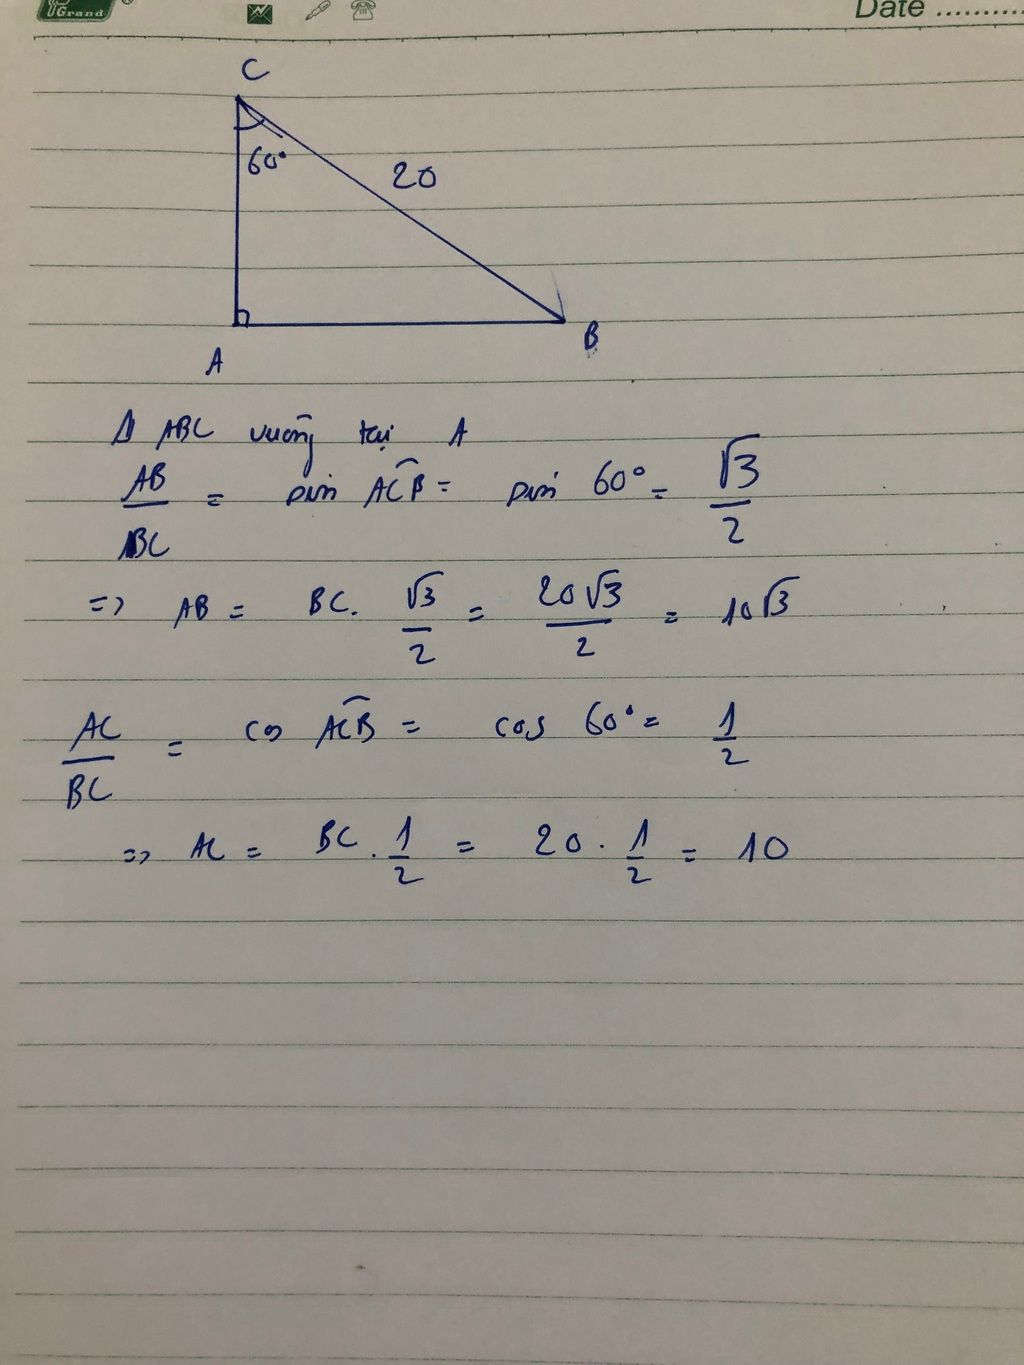 Grand
Date ..........
C
60°
20
A
B
Δ ABC vuông tại A
AB/BC = sin ACB = sin 60° = √3/2
=> AB = BC. √3/2 = 20√3/2 = 10√3
AC/BC = cos ACB = cos 60° = 1/2
=> AC = BC . 1/2 = 20 . 1/2 = 10